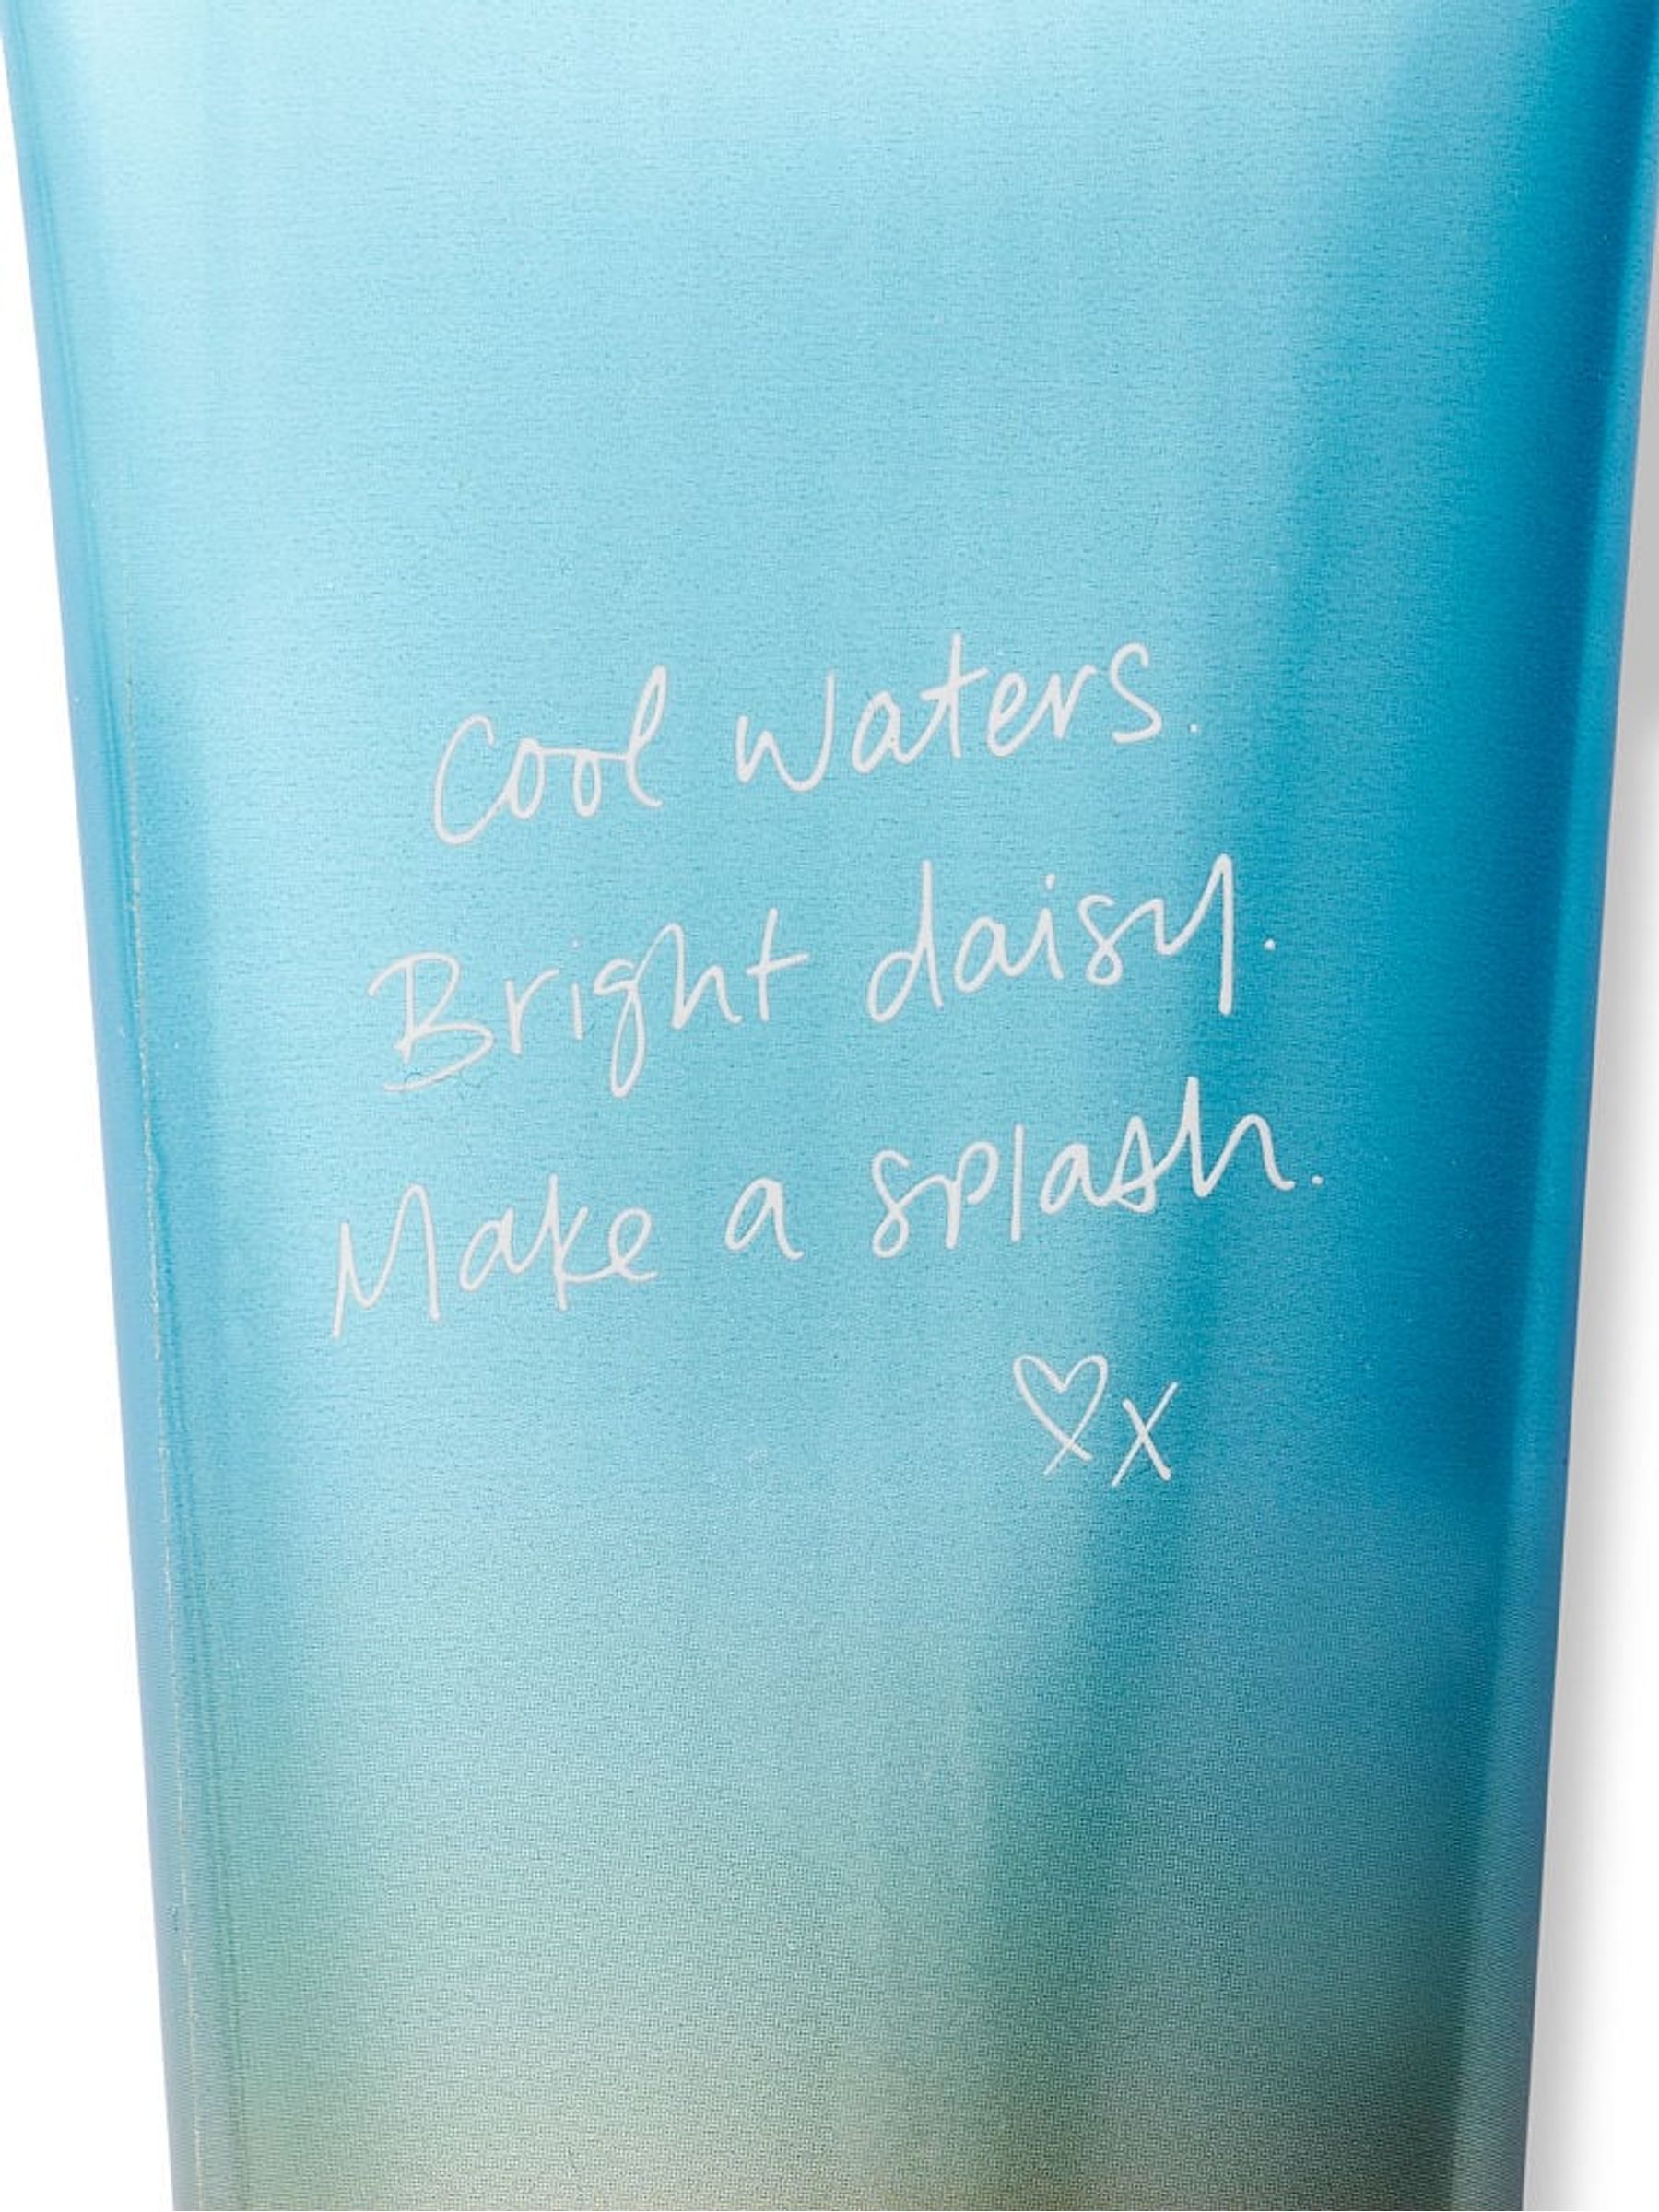 Cool waters.
Bright daisy.
Make a splash.
♡x